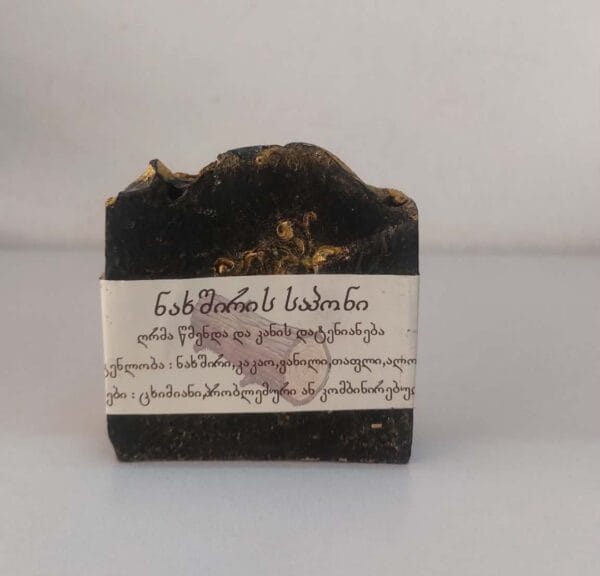 ნახშირის საპონი
ღრმა წმენდა და კანის დატენიანება
გენლობა : ნახშირი,კაკაო,ვანილი,თაფლი,ალო
ები : ცხიმიანი,პრობლემური ან კომბინირებულ